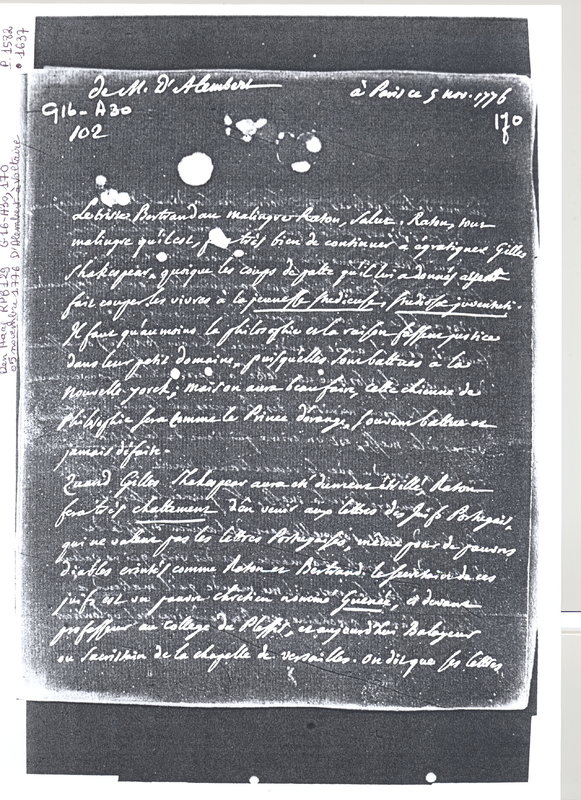 P. 1582
• 1637
Den Haag RPB 129 G16-A30, 170
05 novembre 1776 D'Alembert à Voltaire
de M. D'Alembert
à Paris ce 5 nov. 1776
G16-A30
102
170
Le triste Bertrand au malingre Raton, salut. Raton, tout
malingre qu'il est, fait très bien de continuer à égratigner Gilles
Shakespear, quoique les coups de patte qu'il lui a donnés ayent
fait couper les vivres à la jeunesse studieuse, studiosæ juventuti.
Il faut qu'au moins la philosophie et la raison fassent justice
dans leur petit domaine, puisqu'elles sont battues à la
nouvelle yorck; mais on aura beau faire, cette chienne de
philosophie sera comme le Prince d'orange, souvent battue et
jamais défaite.
Quand Gilles Shakespear aura été dument étrillé, Raton
fera très chattement d'en venir aux lettres des juifs Portugais,
qui ne valent pas les lettres Portugaises, même pour de pauvres
diables éreintés comme Raton et Bertrand. le secrétaire de ces
juifs est un pauvre chrétien nommé Guenée, ci devant
professeur au collège du Plessis, et aujourd'hui Balayeur
ou Sacristain de la chapelle de versailles. On dit que ses lettres